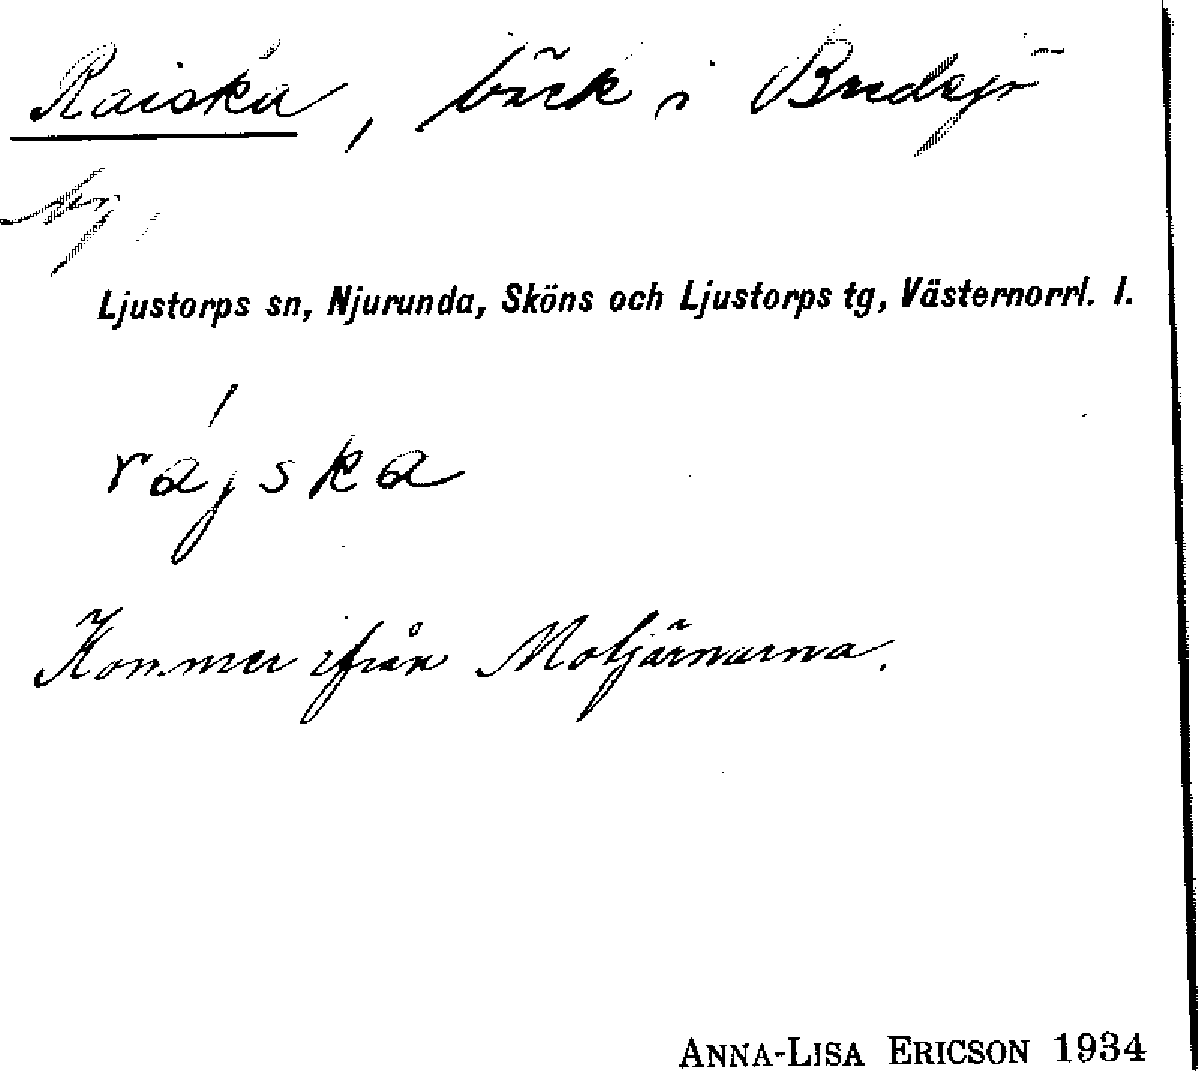 Raiska, bäck i Bredsjö
Ljustorps sn, Njurunda, Sköns och Ljustorps tg, Västernorrl. l.
rájska
Kommer ifrån Motjärnarna.
ANNA-LISA ERICSON 1934